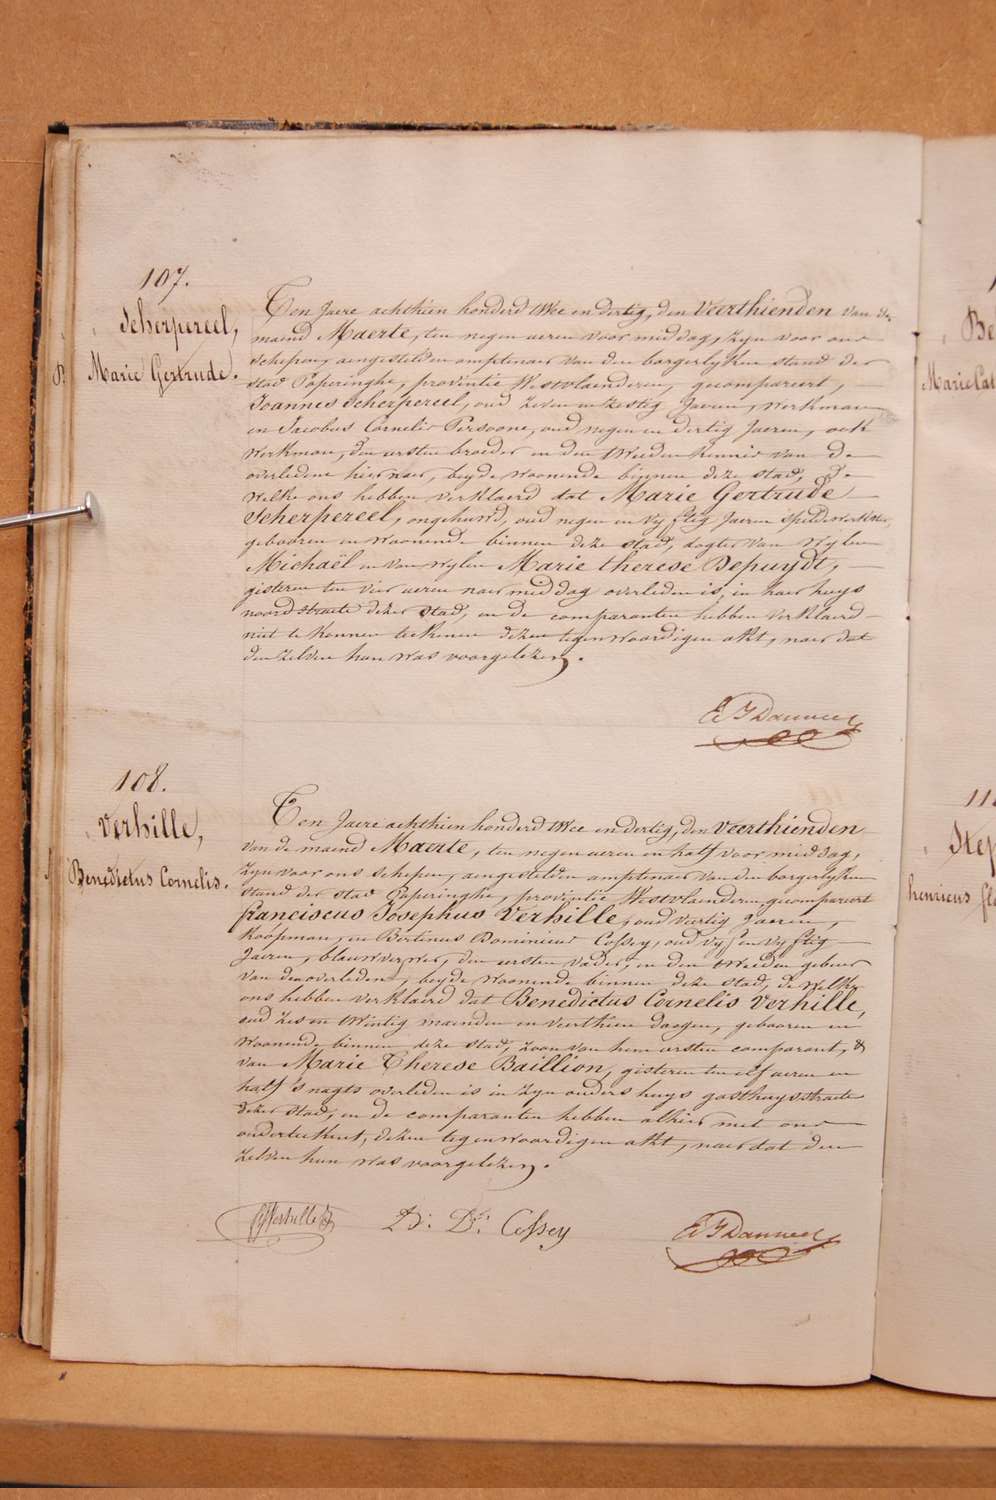 107.
Scherpereel,
Marie Gertrude.
Ten Jaere achthien honderd twee en dertig, den Veerthienden van de
maend Maerte, ten negen ueren voor middag, zyn voor ons
schepen, aengestelden amptenaer van den borgerlyken stand der
stad Poperinghe, provintie Westvlaenderen, gecompareert,
Joannes Scherpereel, oud zeven en zestig Jaeren, werkman
en Jacobus Cornelis Persoone, oud negen en dertig Jaeren, ook
werkman, den eersten broeder en den tweeden kennis van de
overledene hier naer, beyde woonende binnen deze stad, De
welke ons hebben verklaerd dat Marie Gertrude
Scherpereel, ongehuwd, oud negen en vyftig Jaeren spildewerkster,
gebooren en woonende binnen deze stad, dogter van wylen
Michaël en van wylen Marie therese Depuydt,
gisteren ten vier ueren naer middag overleden is, in haer huys
noordstraete dezer stad, en de comparanten hebben verklaerd
niet te konnen teekenen dezen tegenwoordigen akt, naer dat
den zelven hun was voorgelezen.
108.
Verhille,
Benedictus Cornelis.
Ten Jaere achthien honderd twee en dertig, den Veerthienden
van de maend Maerte, ten negen ueren en half voor middag,
zyn voor ons schepen, aengestelden amptenaer van den borgerlyken
stand der stad Poperinghe, provintie Westvlaenderen, gecompareert
franciscus Josephus Verhille, oud veertig Jaeren,
koopman, en Bertinus Dominicus Cossey, oud vyf en vyftig
Jaeren, blauwverwer, den eersten vader, en den tweeden gebuer
van den overleden, beyde woonende binnen deze stad, de welke
ons hebben verklaerd dat Benedictus Cornelis Verhille,
oud zes en twintig maenden en veerthien daegen, gebooren en
woonende binnen deze stad, zoon van hem eersten comparant, &
van Marie Therese Baillion, gisteren ten elf ueren en
half s'nagts overleden is in zyn ouders huys gasthuysstraete
dezer stad, en de comparanten hebben alhier met ons
onderteekent, dezen tegenwoordigen akt, naer dat den
zelven hun was voorgelezen.
Verhille
B. D. Cossey